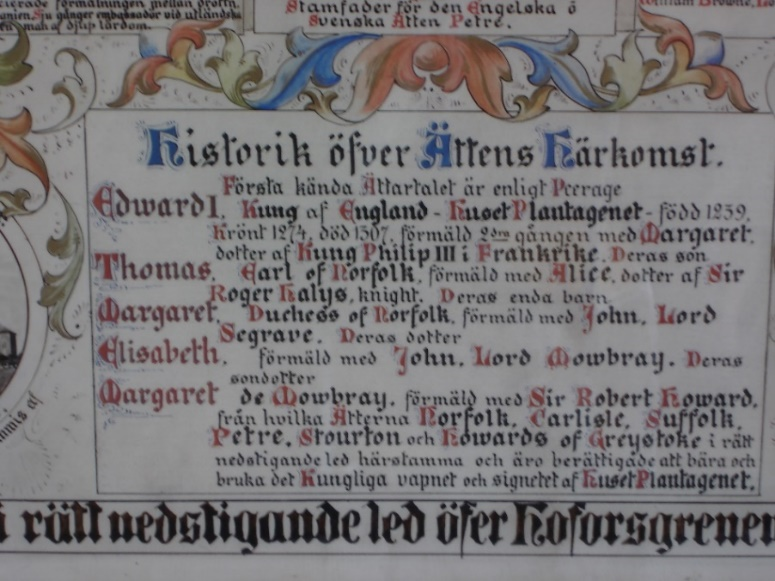 cierade förmälningen mellan drottn.
anien. Sju gånger embassadör vid utländska
en man af djup lärdom.
Stamfader för den Engelska ö
Svenska Ätten Petre.
William Browne, Lo
Historik öfver Ättens Härkomst.
Första kända Ättartalet är enligt Peerage
Edward I. Kung af England - Huset Plantagenet - född 1239.
Krönt 1274, död 1307, förmäld 2dra gången med Margaret.
dotter af Kung Philip III i Frankrike. Deras son
Thomas. Earl of Norfolk, förmäld med Alice, dotter af Sir
Roger Halys, knight. Deras enda barn
Margaret. Duchess of Norfolk, förmäld med John, Lord
Segrave. Deras dotter
Elisabeth. förmäld med John, Lord Mowbray. Deras
sondotter
Margaret de Mowbray, förmäld med Sir Robert Howard,
från hvilka Ätterna Norfolk, Carlisle, Suffolk,
Petre, Stourton och Howards of Greystoke i rätt
nedstigande led härstamma och äro berättigade att bära och
bruka det Kungliga vapnet och signetet af Huset Plantagenet.
mmis af
i rätt nedstigande led öfer Hoforsgrenen